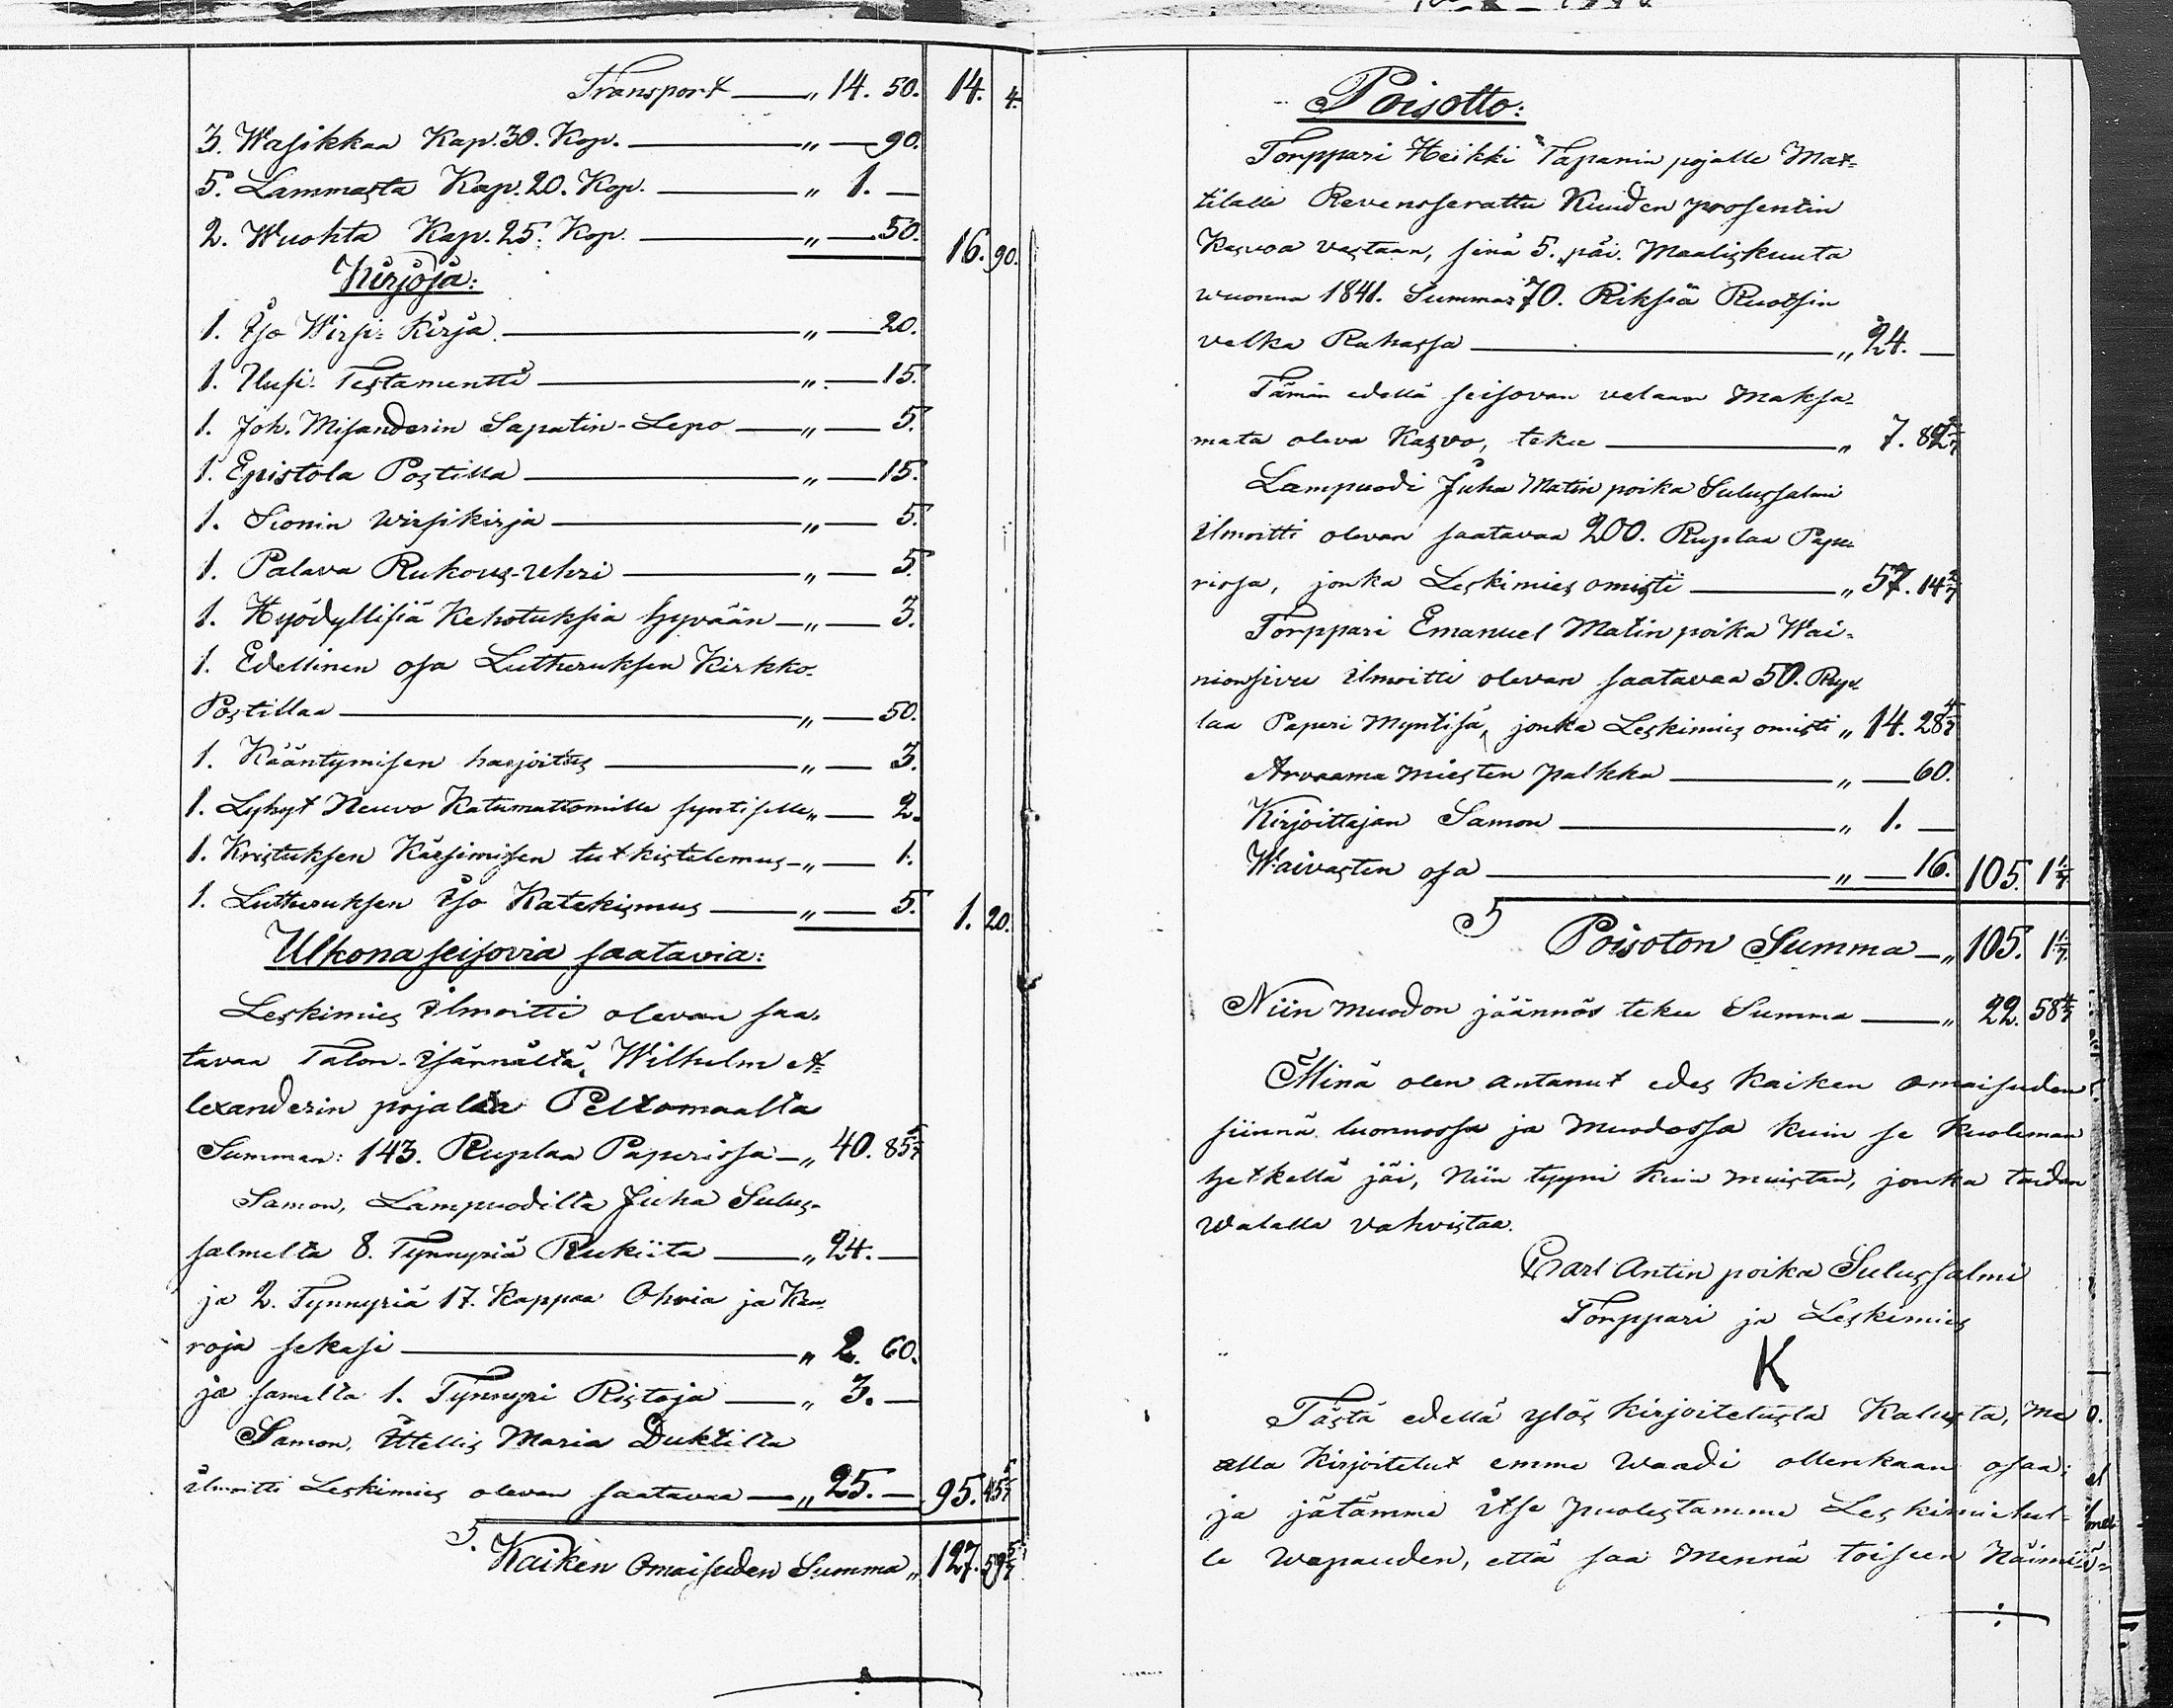 Transport — „ 14. 50. 14. 4.
3. Wasikkaa Kap. 30. Kop. — „ — 90.
5. Lammasta Kap. 20. Kop. — „ 1. —
2. Wuohta Kap. 25. Kop. — „ — 50. 16. 90.
Kirjoja:
1. Iso Wirsi-Kirja — „ — 20.
1. Uusi Testamentti — „ — 15.
1. Joh. Misanderin Sapatin-Lepo — „ — 5.
1. Epistola Postilla — „ — 15.
1. Sionin wirsikirja — „ — 5.
1. Palava Rukous-Uhri — „ — 5.
1. Hyödyllisiä Kehotuksia hyvään — „ — 3.
1. Edellinen osa Lutheruksen Kirkko-
Postillaa — „ — 50.
1. Kääntymisen harjoitus — „ — 3.
1. Lyhyt Neuvo Katumattomille syntiselle „ — 2.
1. Kristuksen Kärsimisen tutkistelemus — „ — 1.
1. Lutheruksen Iso Katekismus — „ — 5. 1. 20.
Ulkona seisovia saatavia:
Leskimies ilmoitti olevan saa-
tavaa Talon-isännältä, Wilhelm A-
lexanderin pojalta Peltomaalta
Summan: 143. Ruplaa Paperissa — „ 40. 85 5/7
Samon, Lampuodilta Juha Sulus-
salmelta 8. Tynnyriä Rukiita — „ 24. —
ja 2. Tynnyriä 17. Kappaa Ohria ja Kau-
roja sekasi — „ 2. 60.
ja samalta 1. Tynnyri Ristoja — „ 3. —
Samon, Itellis Maria Duktilta
ilmoitti Leskimies olevan saatavaa — „ 25. — 95. 45 5/7
S. Kaiken Omaisuden Summa „ 127. 59 5/7
Poisotto:
Torppari Heikki Tapanin pojalle Mat-
tilalle Revensserattu Kuuden prosentin
Kasvoa vastaan, sinä 5. päi. Maaliskuuta
wuonna 1841. Summas 70. Riksiä Ruotsin
velka Rahassa — „ 24. —
Tämän edellä seisovan velaan Maksa-
mata oleva Kasvo, tekee — „ 7. 82 2/7
Lampuodi Juha Matin poika Sulussalmi
ilmoitti olevan saatavaa 200. Ruplaa Pape-
rissa, jonka Leskimies omisti — „ 57. 14 2/7
Torppari Emanuel Matin poika Wai-
nionsivu ilmoitti olevan saatavaa 50. Rup-
laa Paperi Myntisä, jonka Leskimies omisti „ 14. 28 4/7
Arvaama miesten palkka — „ — 60.
Kirjoittajan Samon — „ 1. —
Waivasten osa — „ — 16. 105. 1 1/7
S Poisoton Summa — „ 105. 1 1/7
Niin muodon jäännös tekee Summa — „ 22. 58 4/7
Minä olen antanut edes kaiken omaisuden
siinnä luonnossa ja Muodossa kuin se Kuoleman
hetkellä jäi, niin tyyni kuin muistan, jonka taidan
walalla vahvistaa.
Carl Antin poika Sulussalmi
Torppari ja Leskimies
K
Tästä edellä ylös kirjoitetusta Kalusta, me
alla kirjoitetut emme waadi ollenkaan osaa;
ja jätämme itse puolestamme Leskimiehel-
le wapauden, että saa mennä toiseen Naimi-